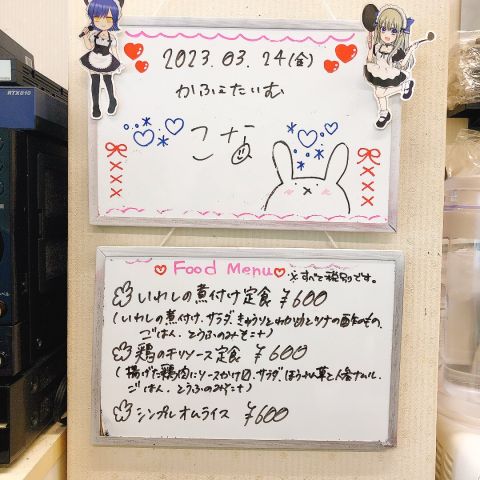 RTX810
2023.03.24(金)
かふぇたいむ
こな
Food Menu
※すべて税別です。
いわしの煮付け定食 ¥600
(いわしの煮付け、サラダ、きゅうりとわかめとツナの酢のもの、
ごはん、とうふのみそ汁)
鶏のチリソース定食 ¥600
(揚げた鶏肉にソースかけ、サラダ、ほうれん草と人参ナムル、
ごはん、とうふのみそ汁)
シンプルオムライス ¥600